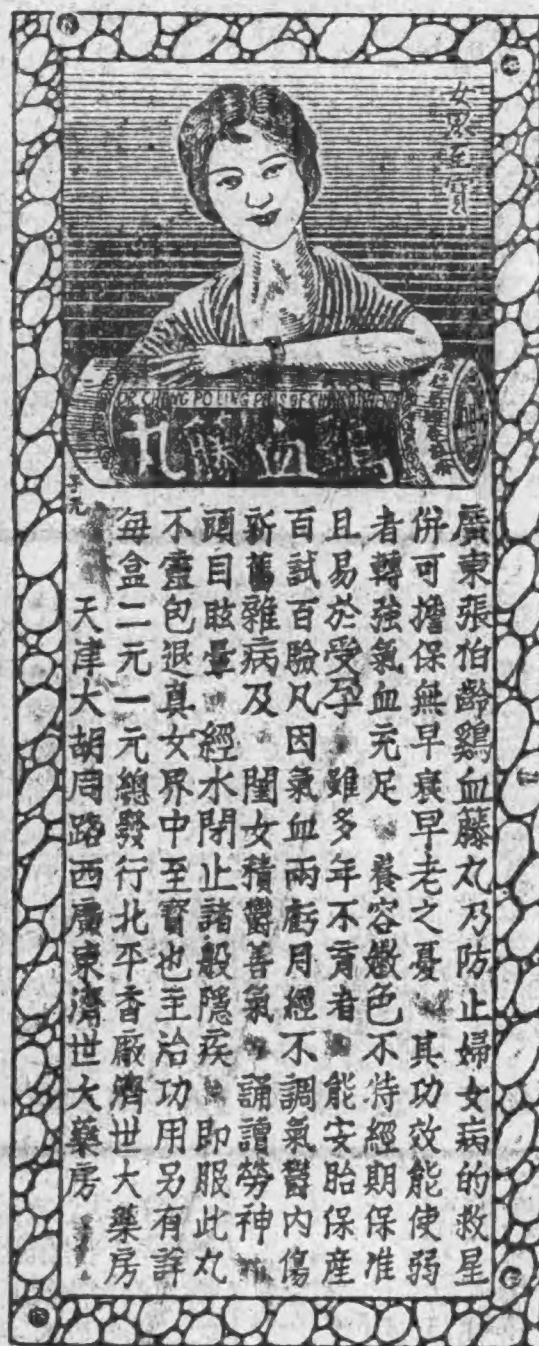 女界至寶
DR CHANG PO LING PILLS OF
鷄血藤丸
廣東張伯齡鷄血藤丸乃防止婦女病的救星
併可擔保無早衰早老之憂 其功效能使弱
者轉強氣血充足 養容嫩色不特經期保准
且易於受孕 雖多年不育者 能安胎保產
百試百驗凡因氣血兩虧月經不調氣鬱內傷
新舊雜病及 閨女積鬱善氣 誦讀勞神
頭目眩暈 經水閉止諸般隱疾 即服此丸
不靈包退真女界中至寶也主治功用另有詳
每盒二元一元總發行北平香厰濟世大藥房
天津大胡同路西廣東濟世大藥房